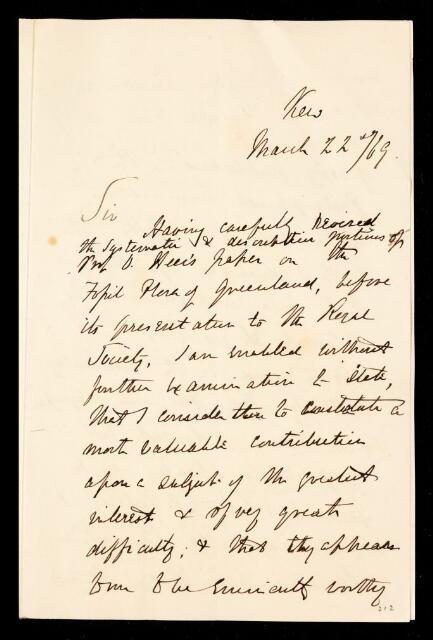 Kew
March 22nd/69.
Sir
Having carefully revised
the systematic & descriptive portions of
Prof O. Heer's paper on the
Fossil Flora of Greenland, before
its presentation to the Royal
Society, I am enabled without
further examination to state,
that I consider them to constitute a
most valuable contribution
upon a subject of the greatest
interest & of very great
difficulty; & that they appear
to me to be eminently worthy
212